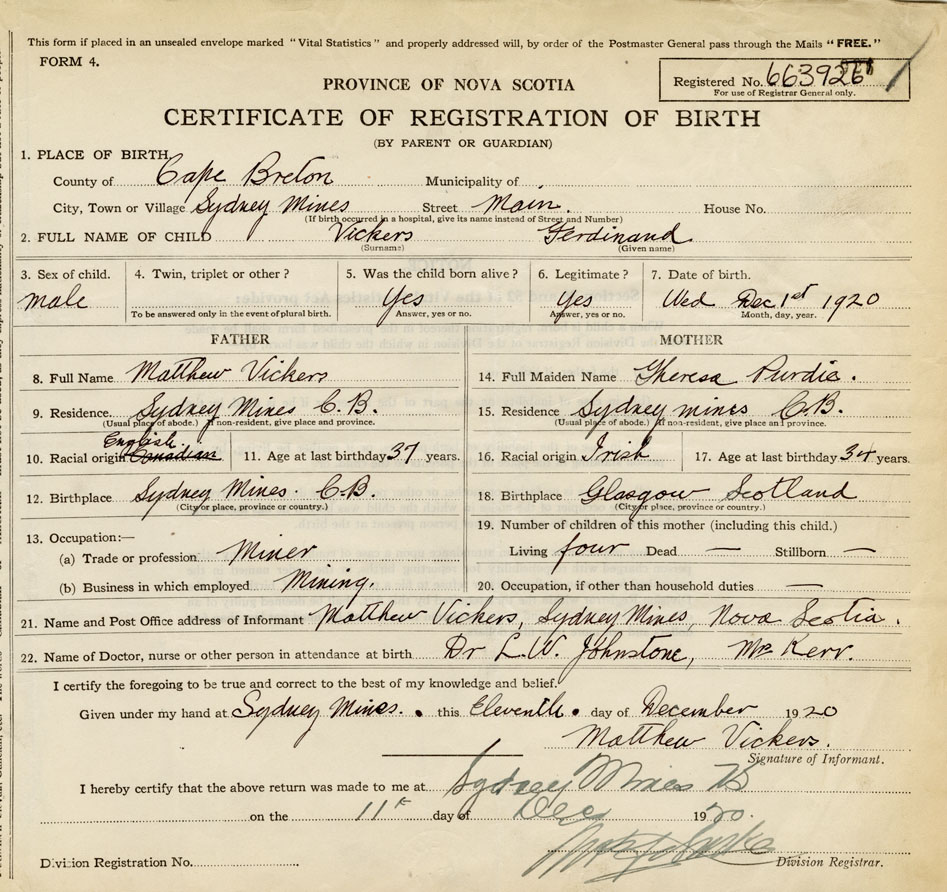 This form if placed in an unsealed envelope marked "Vital Statistics" and properly addressed will, by order of the Postmaster General pass through the Mails "FREE."
FORM 4.
Registered No. 663926
For use of Registrar General only.
PROVINCE OF NOVA SCOTIA
CERTIFICATE OF REGISTRATION OF BIRTH
(BY PARENT OR GUARDIAN)
1. PLACE OF BIRTH
County of Cape Breton Municipality of
City, Town or Village Sydney Mines Street Main. House No.
(If birth occurred in a hospital, give its name instead of Street and Number)
2. FULL NAME OF CHILD Vickers Ferdinand
(Surname) (Given name)
3. Sex of child. 4. Twin, triplet or other? 5. Was the child born alive? 6. Legitimate? 7. Date of birth.
male Yes Yes Wed Dec 1st 1920
To be answered only in the event of plural birth. Answer, yes or no. Answer, yes or no. Month, day, year.
FATHER MOTHER
8. Full Name Matthew Vickers 14. Full Maiden Name Theresa Purdie.
9. Residence. Sydney Mines C.B. 15. Residence Sydney mines C.B.
(Usual place of abode.) If non-resident, give place and province. (Usual place of abode.) If non-resident, give place and province.
English.
10. Racial origin Canadian 11. Age at last birthday 37 years. 16. Racial origin Irish 17. Age at last birthday 34 years.
12. Birthplace Sydney Mines. C.B. 18. Birthplace Glasgow Scotland
(City or place, province or country.) (City or place, province or country.)
19. Number of children of this mother (including this child.)
13. Occupation:—
(a) Trade or profession Miner Living four Dead — Stillborn —
(b) Business in which employed Mining. 20. Occupation, if other than household duties —
21. Name and Post Office address of Informant Matthew Vickers, Sydney Mines, Nova Scotia.
22. Name of Doctor, nurse or other person in attendance at birth Dr L.W. Johnstone, Mrs Kerr.
I certify the foregoing to be true and correct to the best of my knowledge and belief.
Given under my hand at Sydney Mines. this Eleventh day of December 1920
Matthew Vickers.
Signature of Informant.
I hereby certify that the above return was made to me at Sydney Mines
on the 11th day of Dec 1920.
Division Registration No. Division Registrar.